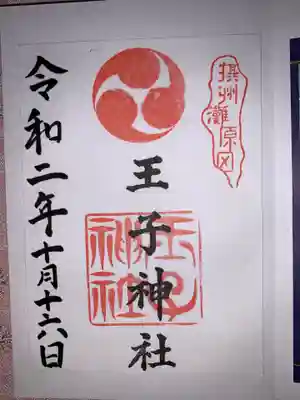 摂州灘原田
王子神社
王子神社
令和二年十月十六日